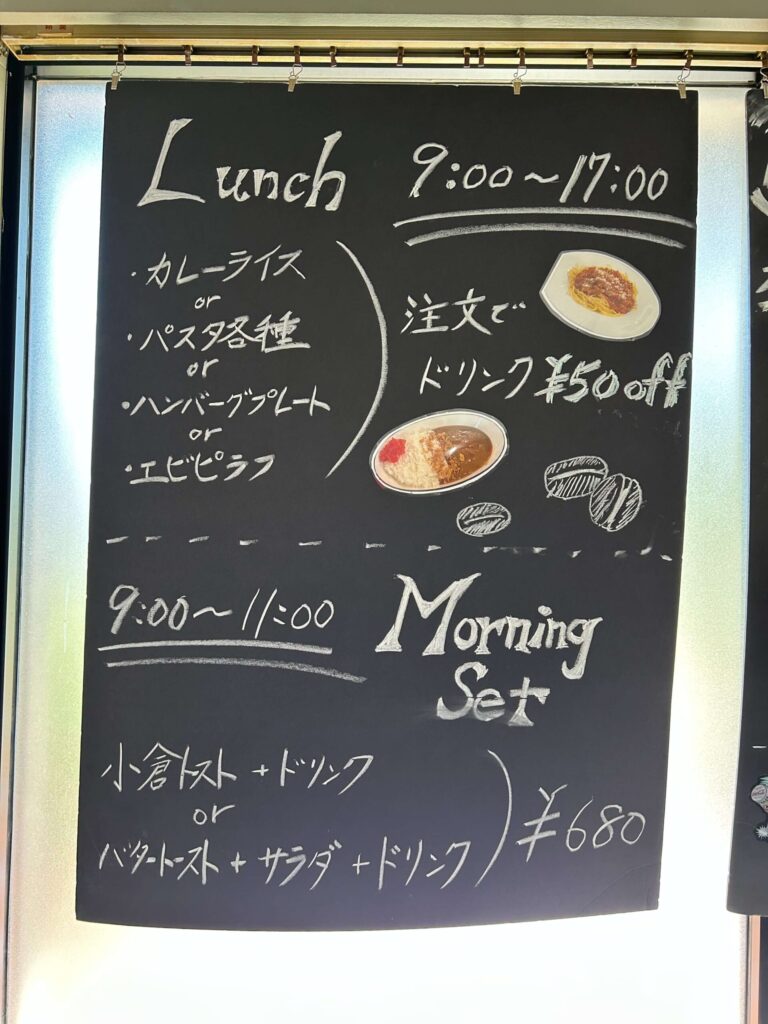 Lunch 9:00～17:00
・カレーライス
or
・パスタ各種
or
・ハンバーグプレート
or
・エビピラフ
注文で
ドリンク ¥50off
9:00～11:00
Morning
Set
小倉トースト + ドリンク
or
バタートースト + サラダ + ドリンク
¥680